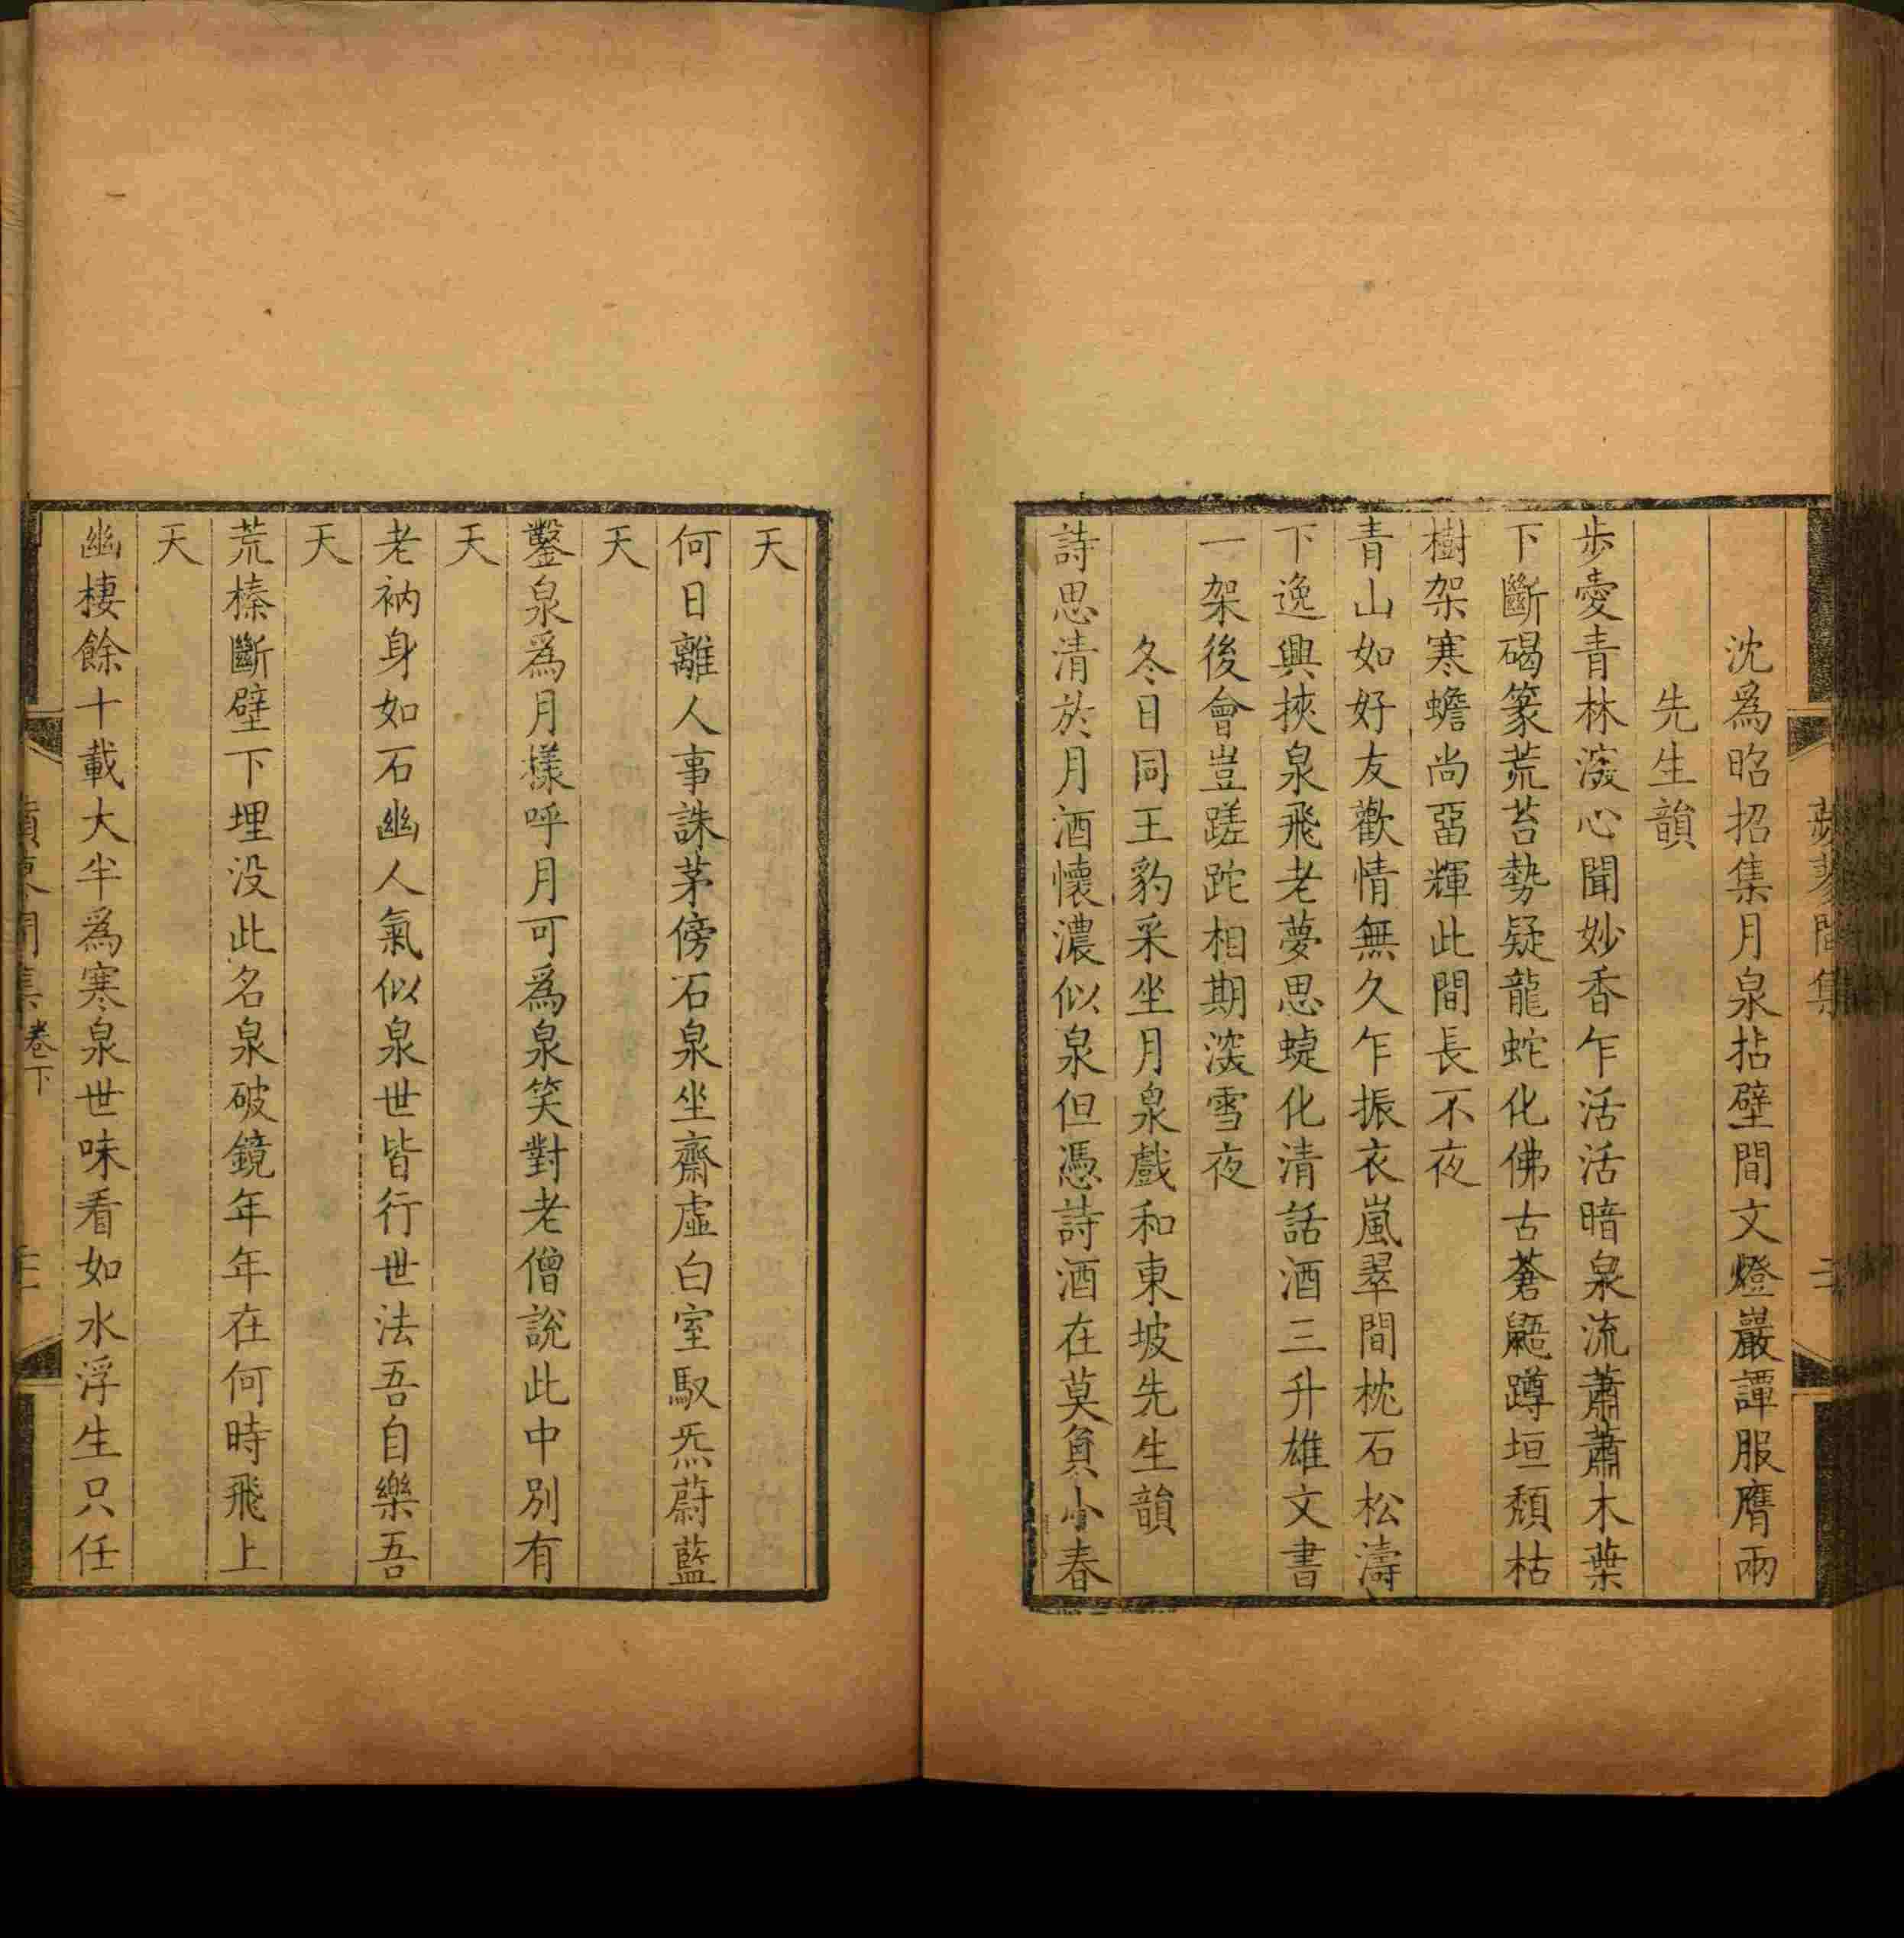 沈爲昭招集月泉拈壁間文燈巖譚服膺兩
先生韻
歩愛青林深心聞妙香乍活活暗泉流蕭蕭木葉
下斷碣篆荒苔勢疑龍蛇化佛古蒼鼯蹲垣頹枯
樹架寒蟾尚畱輝此間長不夜
青山如好友歡情無久乍振衣嵐翠間枕石松濤
下逸興挾泉飛老夢思蝶化清話酒三升雄文書
一架後會豈蹉跎相期深雪夜
冬日同王豹采坐月泉戲和東坡先生韻
詩思清於月酒懷濃似泉但憑詩酒在莫負小春
天
何日離人事誅茅傍石泉坐齋虛白室馭炁蔚藍
天
鑿泉爲月樣呼月可爲泉笑對老僧說此中別有
天
老衲身如石幽人氣似泉世皆行世法吾自樂吾
天
荒榛斷壁下埋没此名泉破鏡年年在何時飛上
天
幽棲餘十載大半爲寒泉世味看如水浮生只任
卷下